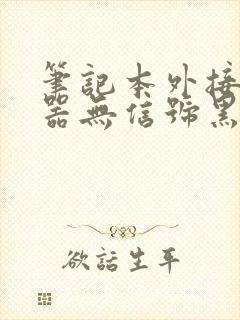 筆記本外接
器無信號黑
欲話生平